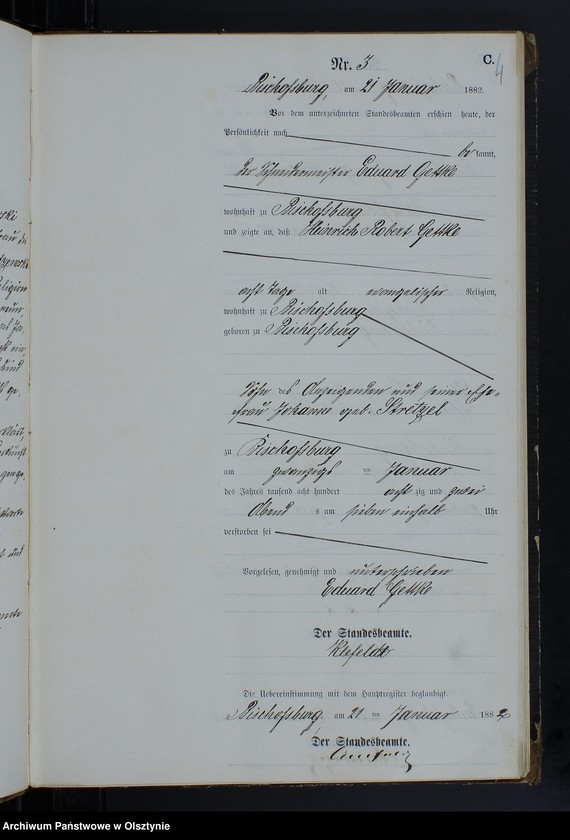 C.
4
Nr. 3
Bischofsburg, am 21 Januar 1882.
Vor dem unterzeichneten Standesbeamten erschien heute, der
Persönlichkeit nach
be kannt,
der Schneidermeister Eduard Gettke
wohnhaft zu Bischofsburg
und zeigte an, daß Heinrich Robert Gettke
acht Tage alt evangelischer Religion,
wohnhaft zu Bischofsburg
geboren zu Bischofsburg
Sohn des Anzeigenden und seiner Ehe-
frau Johanne geb. Stretzel
zu Bischofsburg
am zwanzigst en Januar
des Jahres tausend acht hundert acht zig und zwei
Abend s um sieben einhalb Uhr
verstorben sei
Vorgelesen, genehmigt und unterschrieben
Eduard Gettke
Der Standesbeamte.
Klefeldt
Die Uebereinstimmung mit dem Hauptregister beglaubigt.
Bischofsburg am 21 ten Januar 1882
Der Standesbeamte.
Archiwum Państwowe w Olsztynie